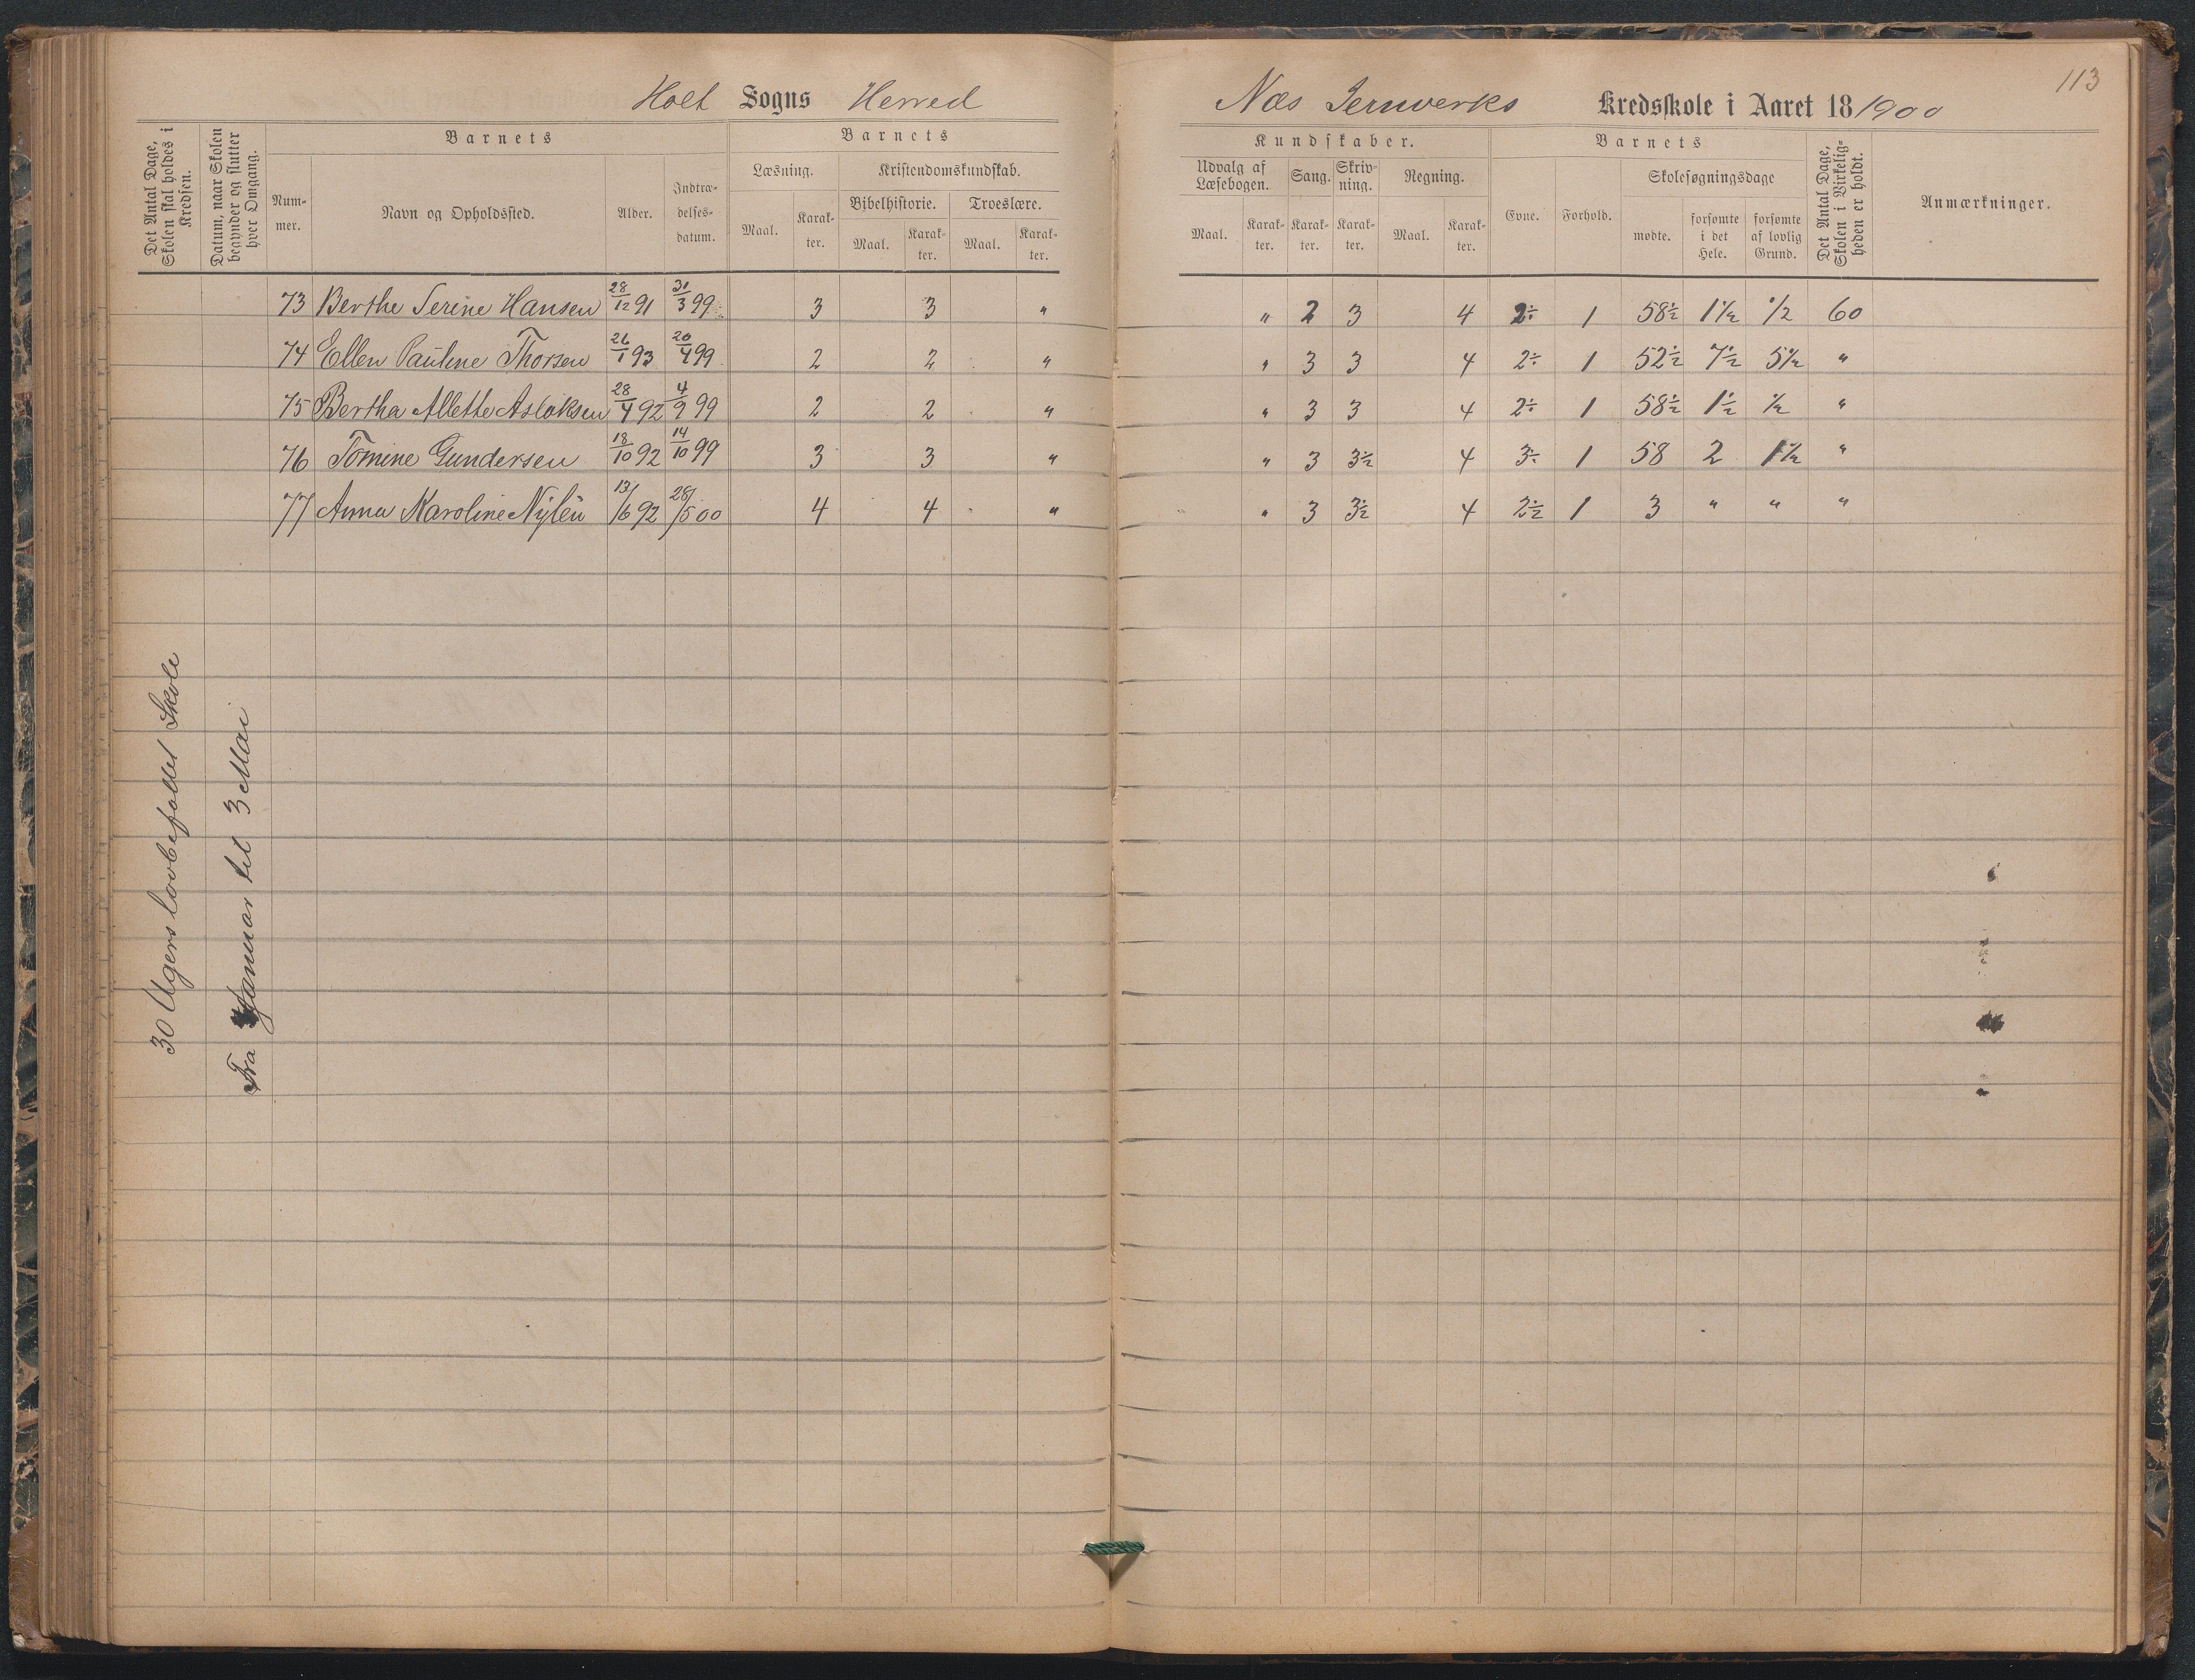 113
Holt Sogns Herred
Næs Jernverks Kredsskole i Aaret 18 1900
Det Antal Dage, Skolen skal holdes i Kredsen.
Datum, naar Skolen begynder og slutter hver Omgang.
Barnets
Nummer.
Navn og Opholdssted.
Alder.
Indtrædelsesdatum.
Barnets
Læsning.
Kristendomskundskab.
Maal.
Karakter.
Bibelhistorie.
Troeslære.
Maal.
Karakter.
Maal.
Karakter.
Kundskaber.
Udvalg af Læsebogen.
Sang.
Skrivning.
Regning.
Maal.
Karakter.
Karakter.
Karakter.
Maal.
Karakter.
Barnets
Evne.
Forhold.
Skolesøgningsdage
mødte.
forsømte i det Hele.
forsømte af lovlig Grund.
Det Antal Dage, Skolen i Virkeligheden er holdt.
Anmærkninger.
73 Berthe Serine Hansen 28/12 91 31/3 99 3 3 " " 2 3 4 2÷ 1 58½ 1½ ½ 60
74 Ellen Pauline Thorsen 26/1 93 20/4 99 2 2 " " 3 3 4 2÷ 1 52½ 7½ 5½ "
75 Bertha Allette Aslaksen 28/4 92 4/9 99 2 2 " " 3 3 4 2÷ 1 58½ 1½ ½ "
76 Tomine Gundersen 18/10 92 14/10 99 3 3 " " 3 3½ 4 3÷ 1 58 2 1½ "
77 Anna Karoline Nylén 13/6 92 28/5 00 4 4 " " 3 3½ 4 2½ 1 3 " " "
30 Ugers lovbefalet Skole
Fra Januar til 3 Mai